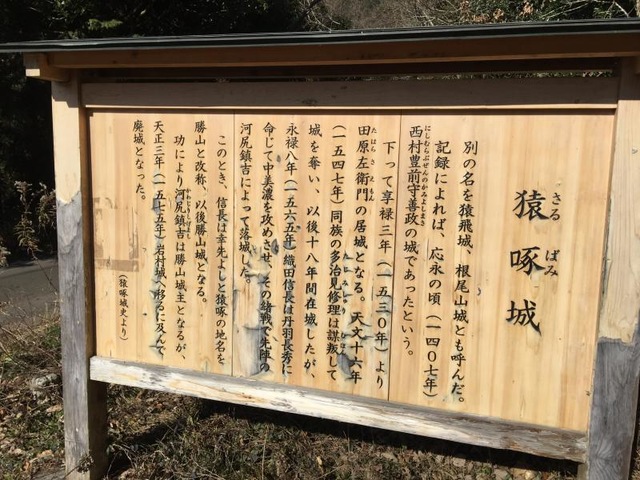 猿啄城
さる
ばみ
別の名を猿飛城、根尾山城とも呼んだ。
記録によれば、応永の頃(一四〇七年)
西村豊前守善政の城であったという。
にしむらぶぜんのかみよしまさ
下って享禄三年(一五三〇年)より
田原左衛門の居城となる。天文十六年
たはらさえもん
(一五四七年)同族の多治見修理は謀叛して
城を奪い、以後十八年間在城したが、
永禄八年(一五六五年)織田信長は丹羽長秀に
命じて中美濃を攻めさせ、その緒戦で先陣の
河尻鎮吉によって落城した。
このとき、信長は幸先よしと猿啄の地名を
勝山と改称、以後勝山城となる。
功により河尻鎮吉は勝山城主となるが、
かわじりしげよし
天正三年(一五七五年)岩村城へ移るに及んで
廃城となった。
(猿啄城史より)